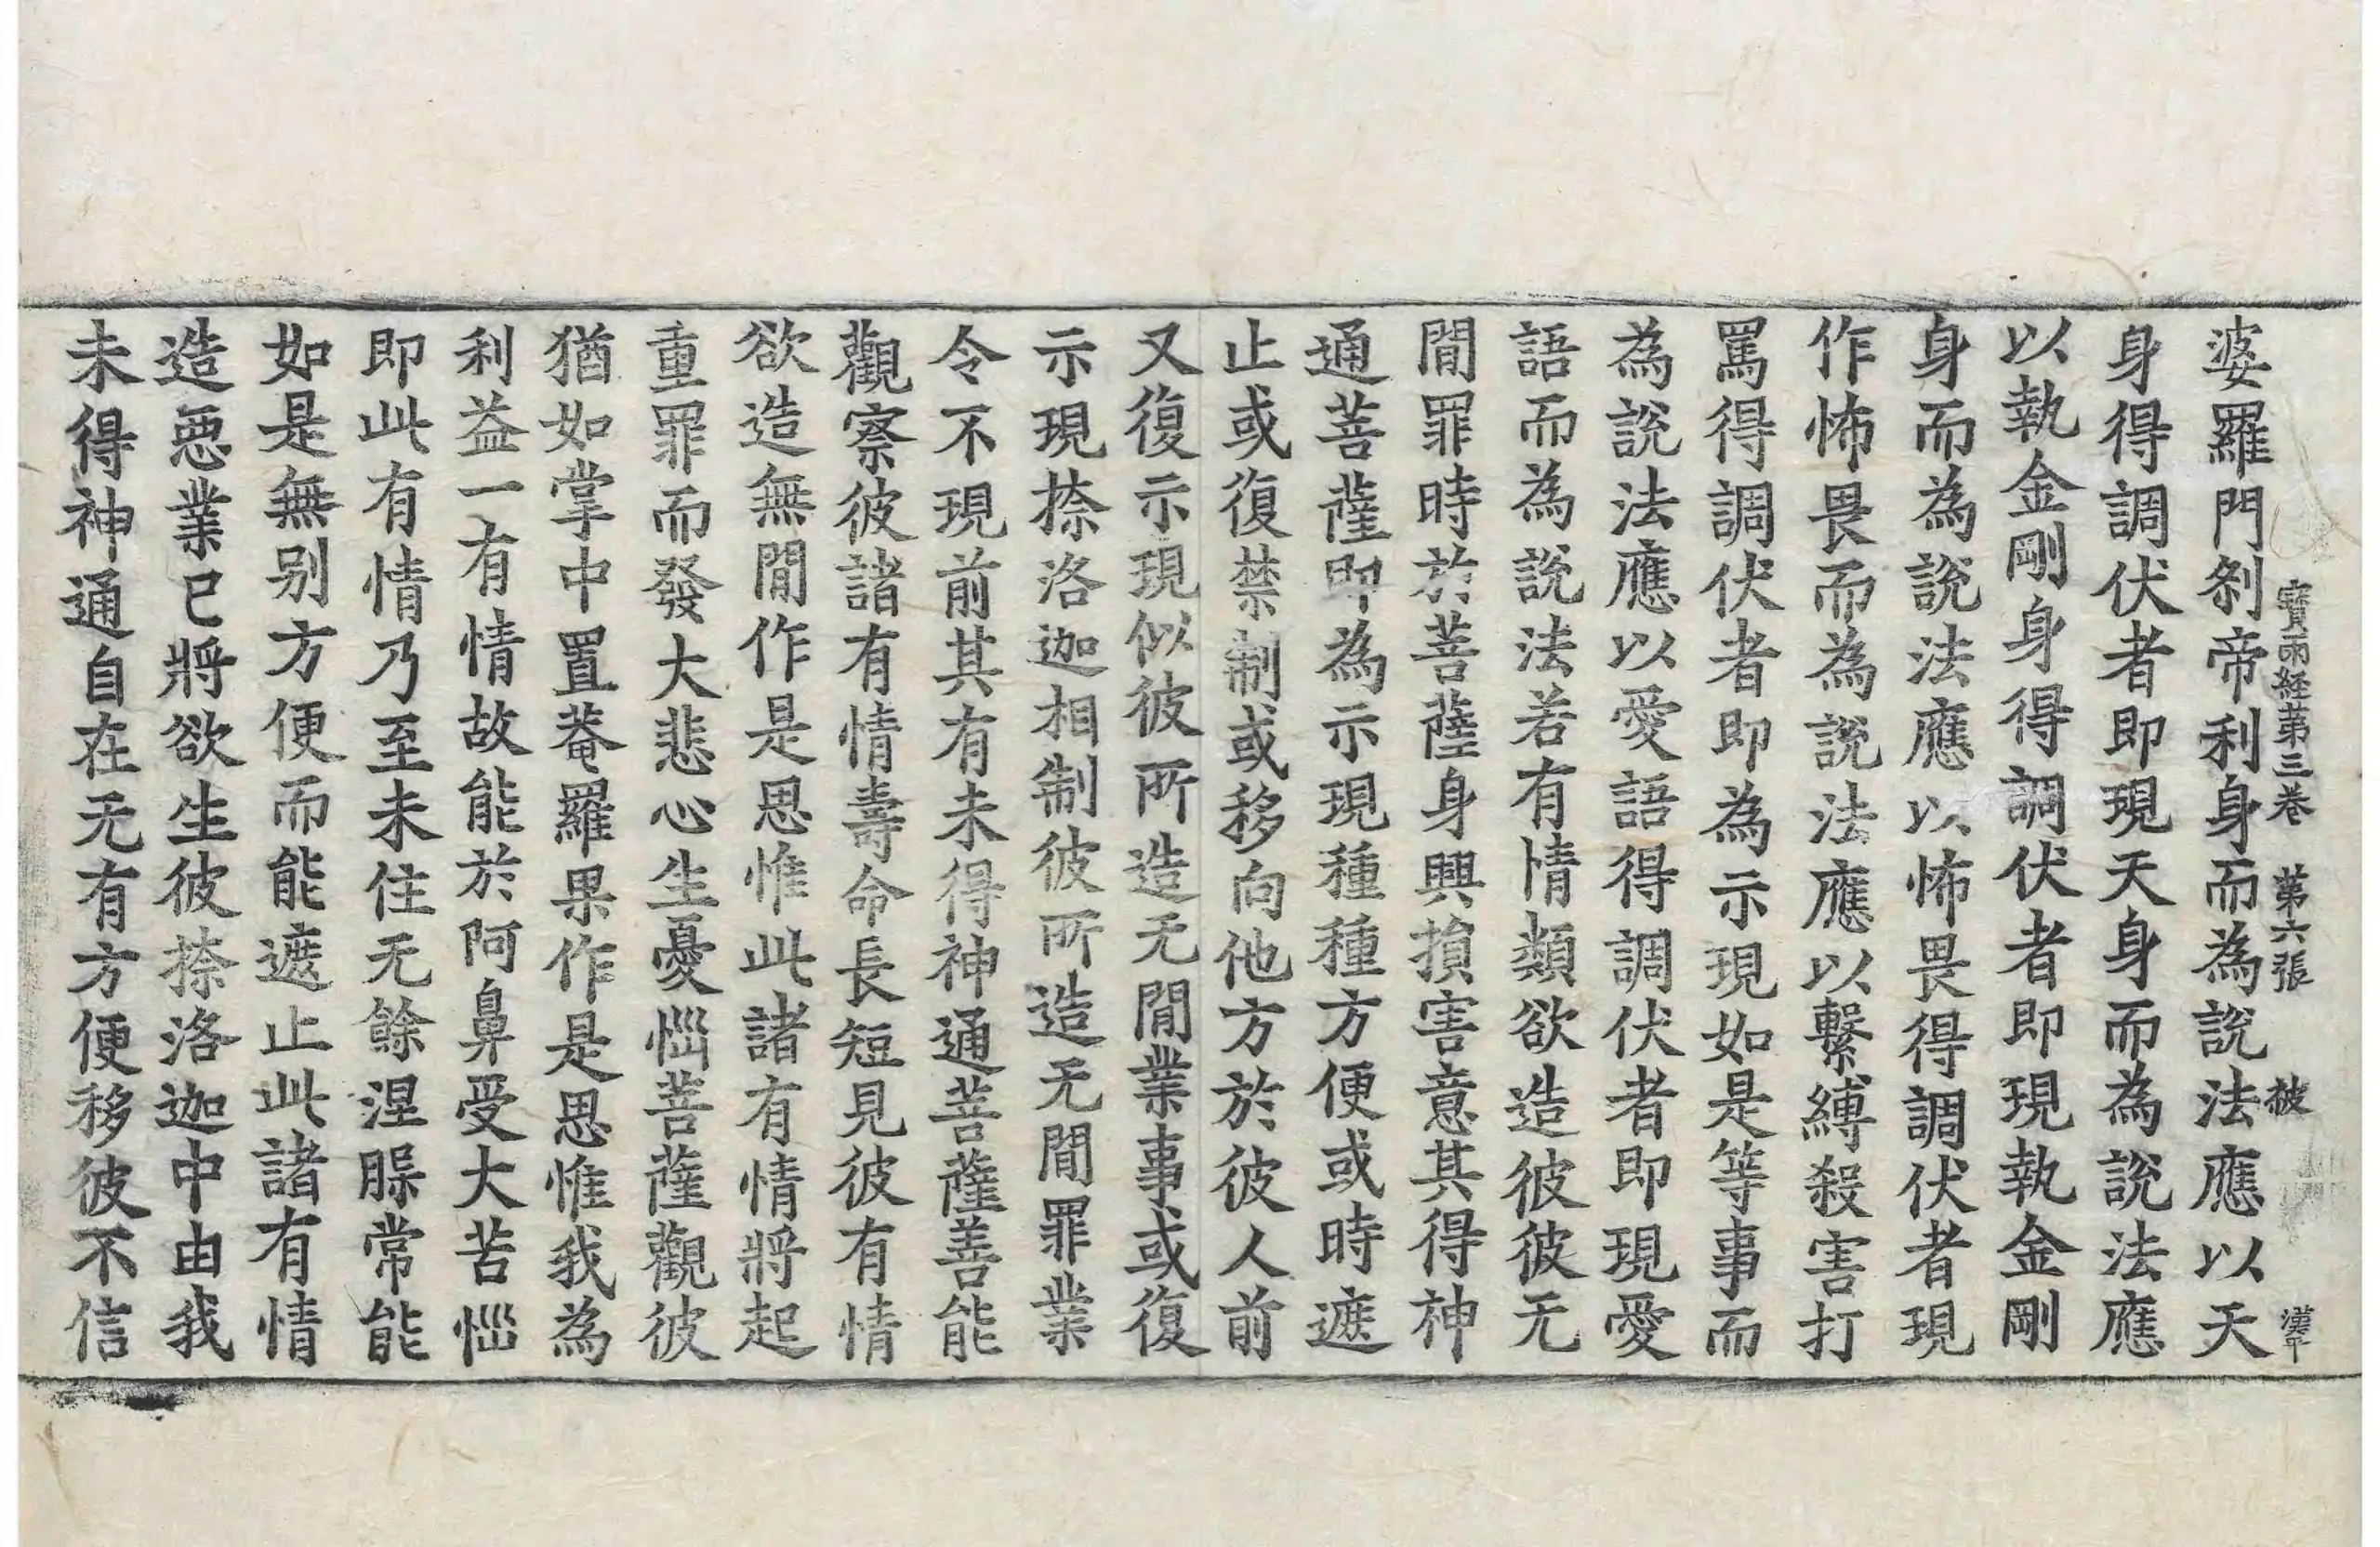 寶雨経苐三巻 苐六張 被 漢平
婆羅門剎帝利身而為說法應以天
身得調伏者即現天身而為說法應
以執金剛身得調伏者即現執金剛
身而為說法應以怖畏得調伏者現
作怖畏而為說法應以繫縛殺害打
罵得調伏者即為示現如是等事而
為說法應以愛語得調伏者即現愛
語而為說法若有情類欲造彼彼无
閒罪時於菩薩身興損害意其得神
通菩薩即為示現種種方便或時遮
止或復禁制或移向他方於彼人前
又復示現似彼所造无閒業事或復
示現捺洛迦相制彼所造无閒罪業
令不現前其有未得神通菩薩善能
觀察彼諸有情壽命長短見彼有情
欲造無閒作是思惟此諸有情將起
重罪而發大悲心生憂惱菩薩觀彼
猶如掌中置菴羅果作是思惟我為
利益一有情故能於阿鼻受大苦惱
即此有情乃至未住无餘涅膎常能
如是無别方便而能遮止此諸有情
造惡業已將欲生彼捺洛迦中由我
未得神通自在无有方便移彼不信